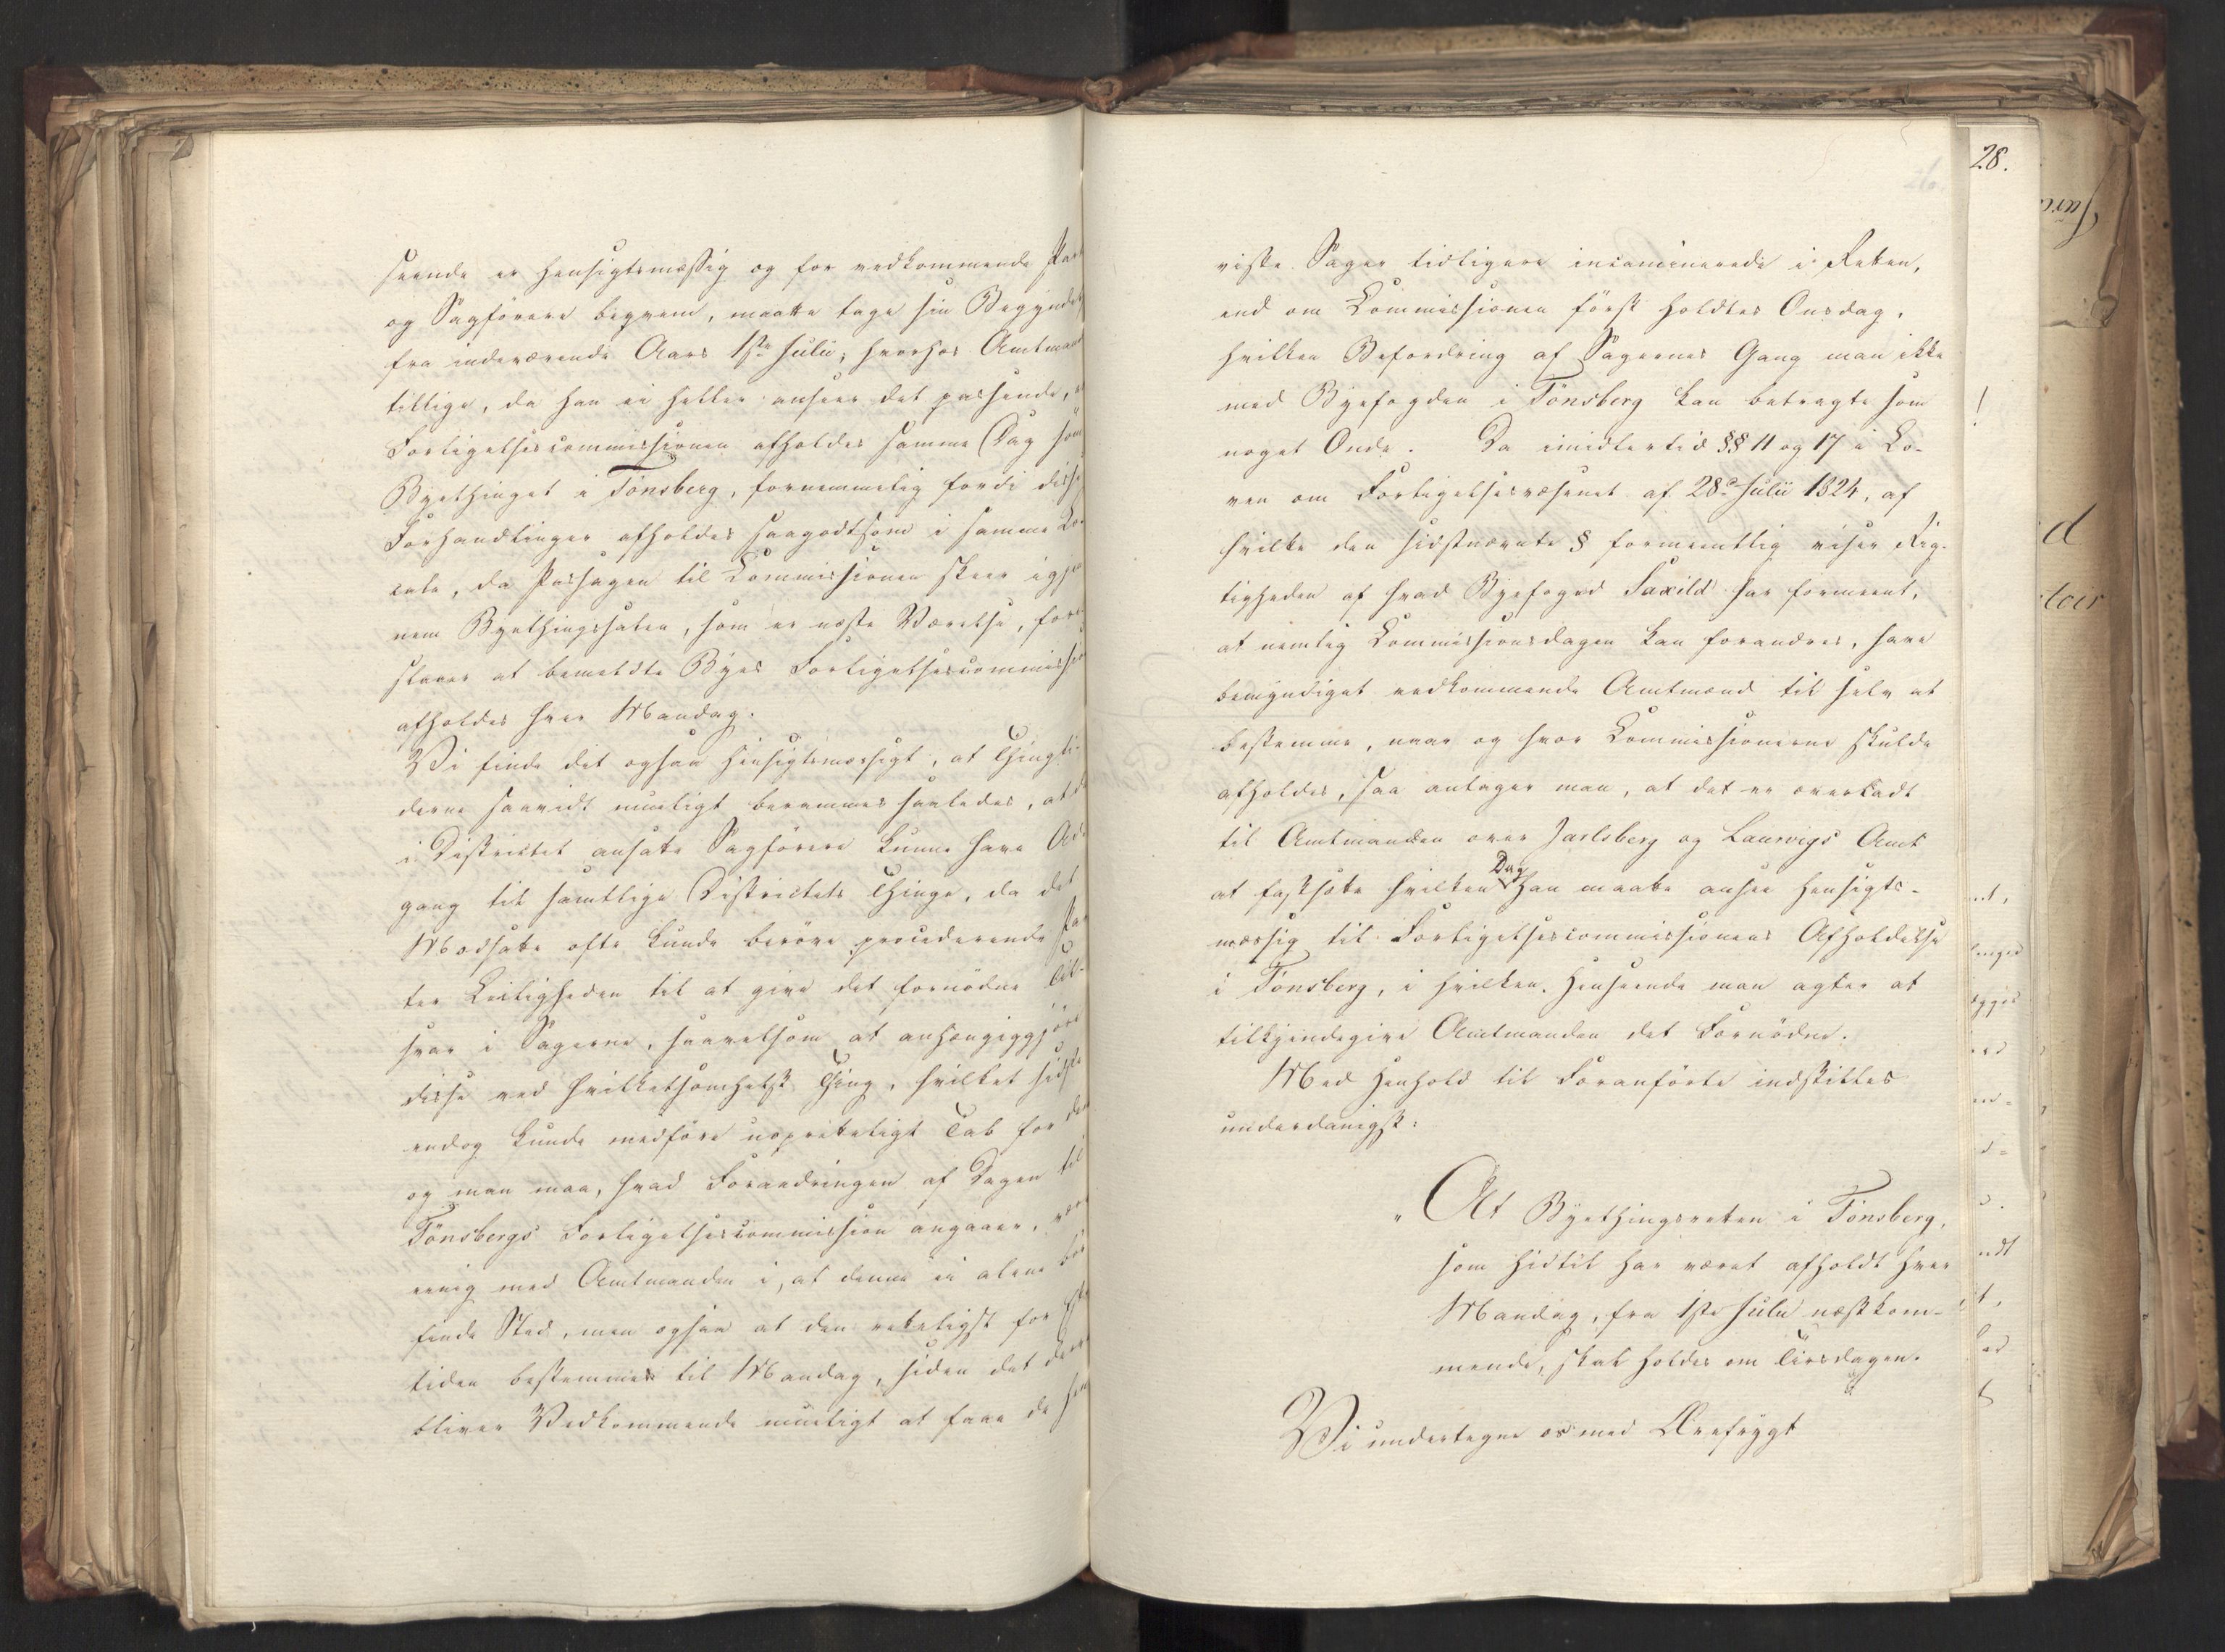 seende er hensigtsmæssig og for vedkommende Par
og Sagförere beqvem, maatte tage sin Begyndel
fra indeværende Aars 1ste Julii; hvorhos Amtmand
tillige, da han ei heller anseer det passende, a
Forligelsescommissionen afholdes samme Dag som
Byethinget i Tönsberg, fornemmelig fordi disse
Forhandlinger afholdes saagodtsom i samme Lo-
cale, da Passagen til Commissionen skeer igjen
nem Byethingssalen, som er næste Værelse, fore
slaaer at bemeldte Byes Forligelsescommission
afholdes hver Mandag.
Vi finde det ogsaa hensigtsmæssigt, at Thingti-
derne saavidt mueligt berammes saaledes, at de
i Districtet ansatte Sagförere kunne have Ad-
gang til samtlige Districtets Thinge, da det
Modsatte ofte kunde beröve procederende Par
ter Leiligheden til at give det fornödne Til-
svar i Sagerne, saavelsom at anhængiggjöre
disse ved hvilketsomhelst Thing, hvilket sidste
endog kunde medföre uopretteligt Tab for dem
og man maa, hvad Forandringen af Dagen til
Tönsbergs Forligelsescommission angaaer, være
enig med Amtmanden i, at denne ei alene bör
finde Sted, men ogsaa at den retteligst for Efter
tiden bestemmes til Mandag, siden det derved
bliver Vedkommende mueligt at faae de hen
28.
viste Sager tidligere incaminerede i Retten,
end om Commissionen först holdtes Onsdag,
hvilken Befordring af Sagernes Gang man ikke
med Byefogden i Tönsberg kan betragte som
noget Onde. Da imidlertid §§ 11 og 17 i Lo-
ven om Forligelsesvæsenet af 28de Julii 1824, af
hvilke den sidstnævnte § formeentlig viser Rig-
tigheden af hvad Byefoged Saxild har formeent,
at nemlig Commissionsdagen kan forandres, have
bemyndiget vedkommende Amtmænd til selv at
bestemme, naar og hvor Commissionerne skulde
afholdes, saa antager man, at det er overladt
til Amtmanden over Jarlsberg og Laurvigs Amt
at fastsætte hvilken Dag han maatte ansee hensigts-
mæssig til Forligelsescommissionens Afholdelse
i Tönsberg, i hvilken Henseende man agter at
tilkjendegive Amtmanden det Fornödne.
Med Henhold til Foranförte indstilles
underdanigst:
"At Byethingsretten i Tönsberg,
som hidtil har været afholdt hver
Mandag, fra 1ste Julii næstkom-
mende, skal holdes om Tirsdagen.
Vi undertegne os med Ærefrygt